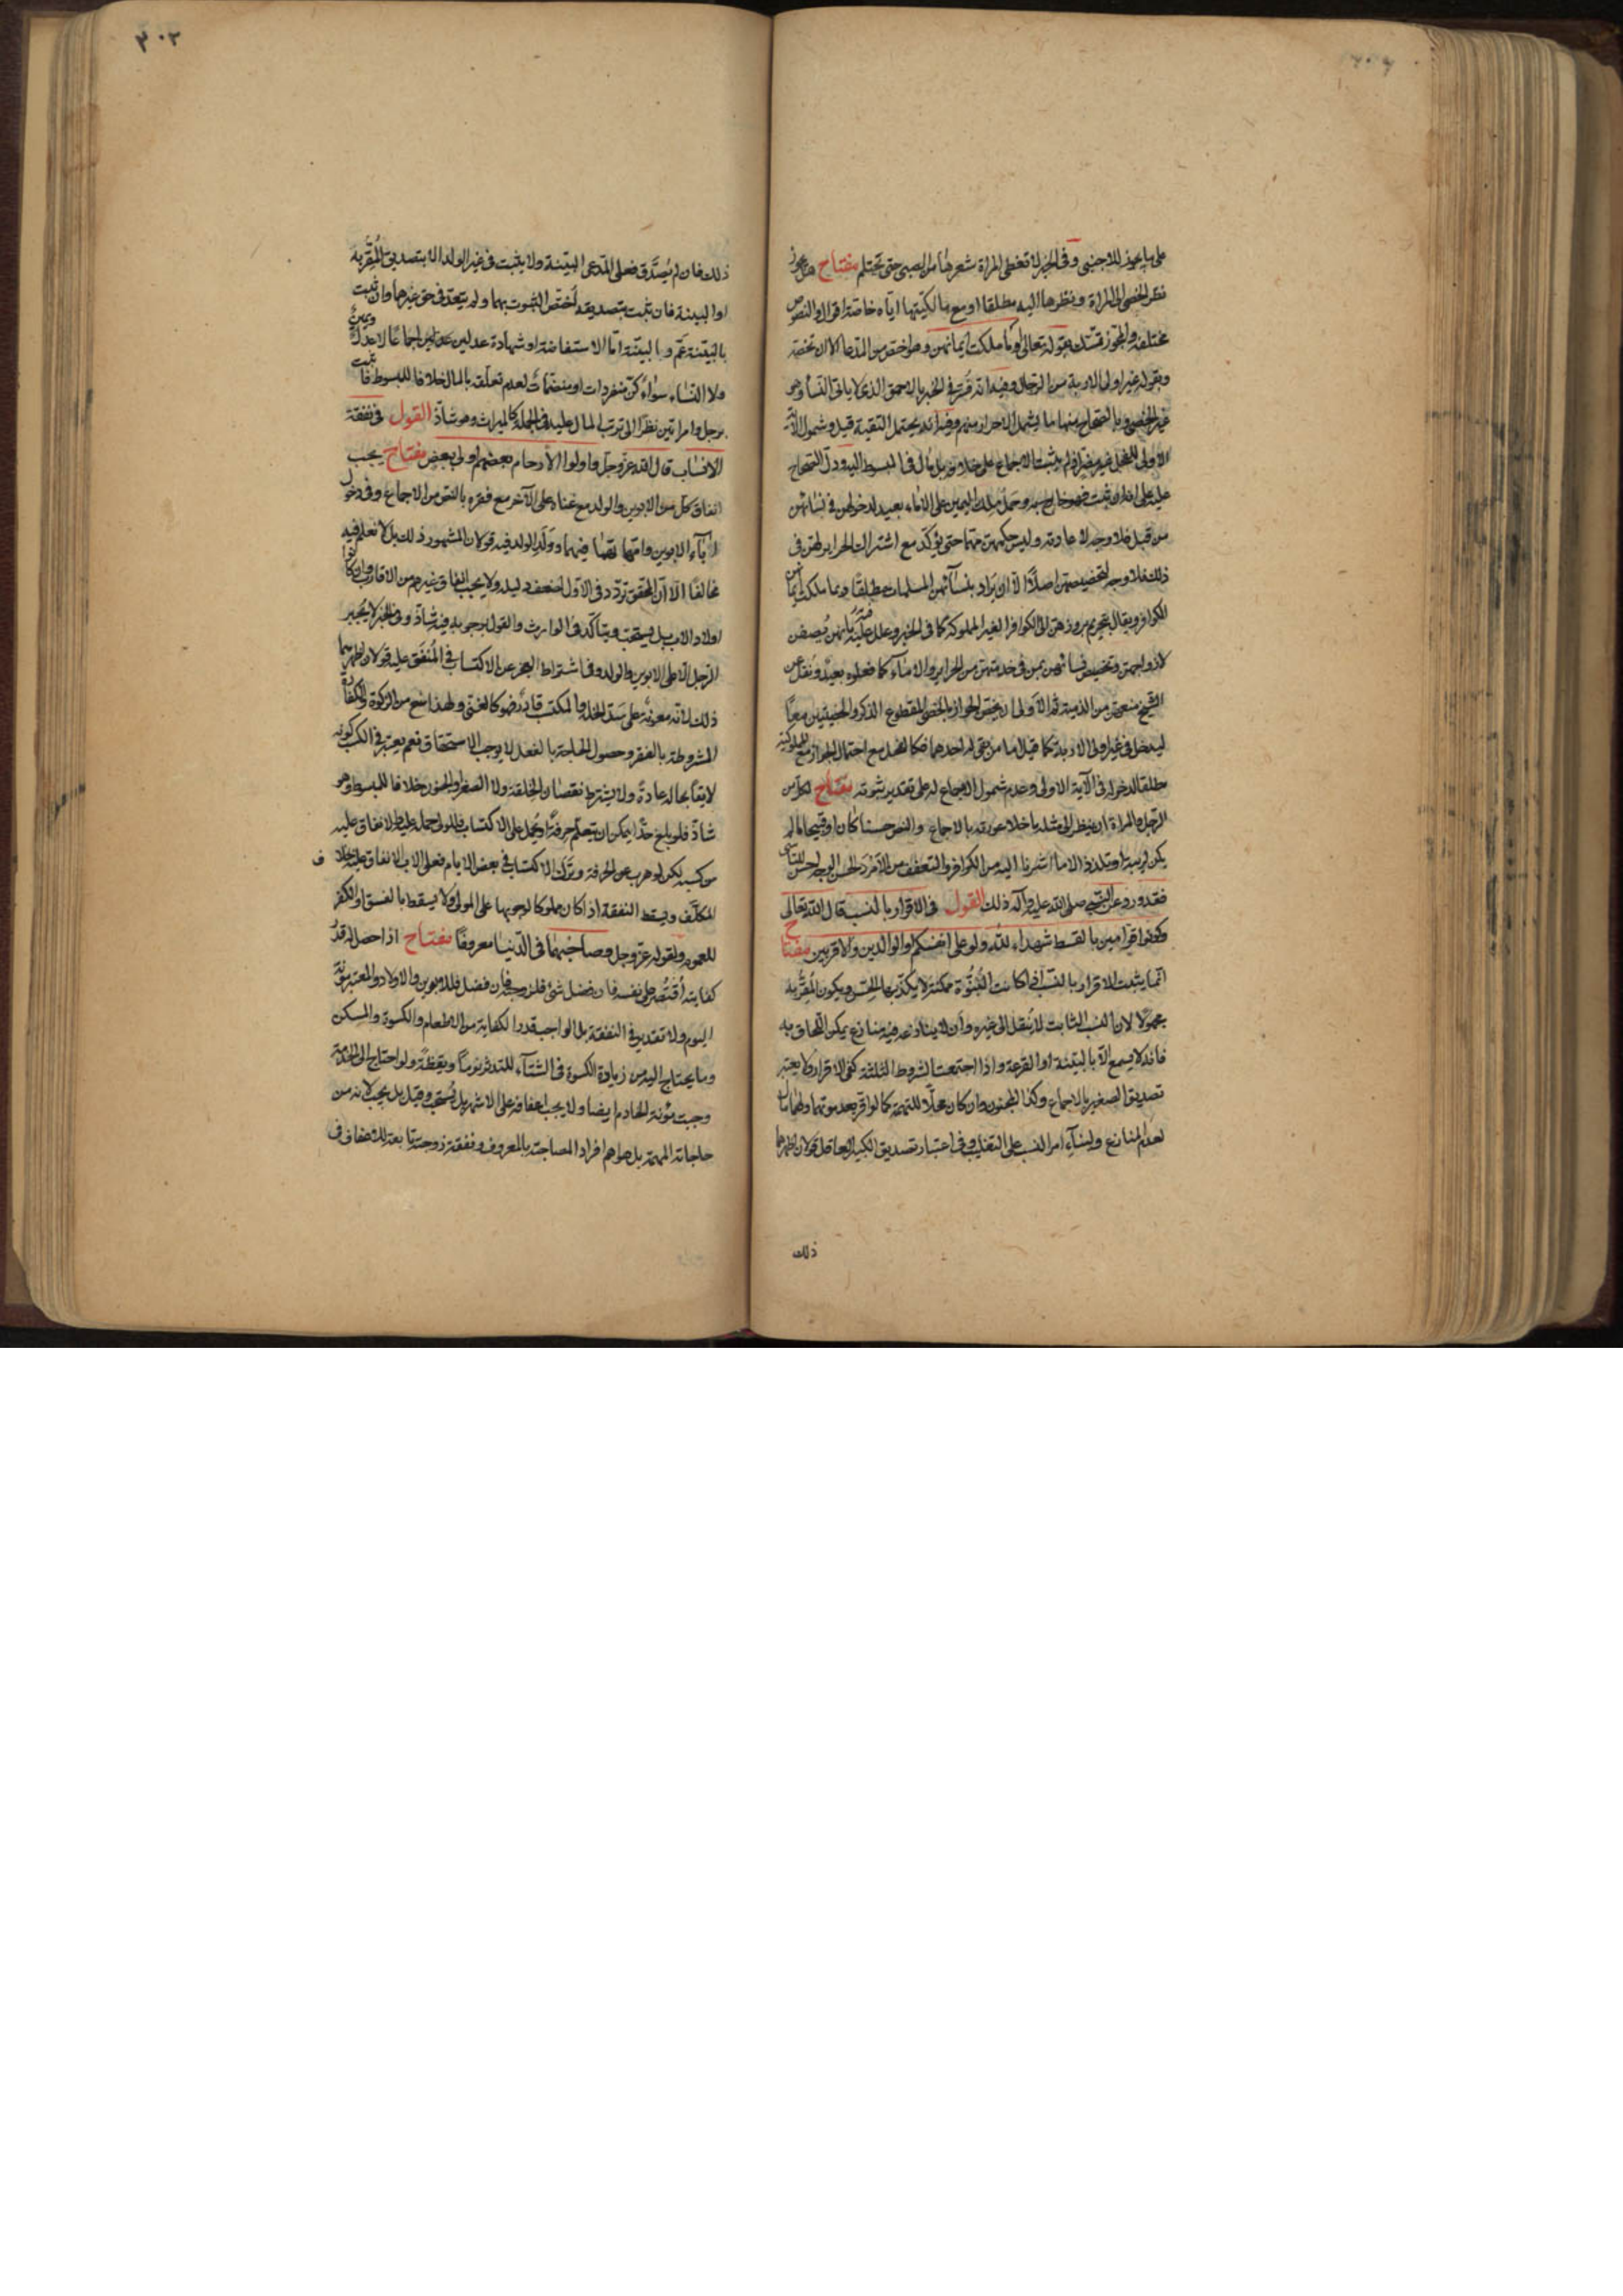 على ما يجوز للاجنبى وفى الخبر لا تغطى المراة شعرها من الصبى حتى يحتلم مفتاح هل يجوز
نظر الخصى الى المراة ونظرها اليه مطلقا او مع مالكيتها اياه خاصة اقوال والنصوص
مختلفة والمجوز تمسك بقوله تعالى او ما ملكت ايمانهن وهو اخص من المدعا الا ان تخصه
وبقوله غير اولى الاربة من الرجال وفيه انه فسر فى الخبر بالاحمق الذى لا ياتى النساء وهو
غير الخصى وبالصحاح منها ما يشمل الاحرار منهم وفيه انه يحتمل التقية قيل وشمول الآية
الاولى للفحل غير مضر اذ لم يثبت الاجماع على خلافه بل مال فى المبسوط اليه ودل الصحاح
عليه على انه ان ثبت فهو خارج به وحمل ملك اليمين على الاماء بعيد لدخولهن فى نسائهن
من قبل فلا وجه لاعادته وليس حكمهن مهما حتى يؤكد مع اشتراك الحراير لهن فى
ذلك فلا وجه لتخصيصهن اصلا الا ان يراد بنسائهن المسلمات مطلقا وبما ملكت ايمانهن
الكوافر ويقال بتحريم بروزهن الى الكوافر الغير المملوكة كما فى الخبر وعلل فيه بانهن يصفن
لازواجهن وتخصيص نسائهن بمن فى خدمتهن من الحراير والاماء كما فعلوه بعيد ونقل عن
الشيخ منعهن من الذمية ثم الاولى ان يختص الجواز بالخصى المقطوع الذكر والخصيتين معا
ليدخل فى غير اولى الاربة كما قيل اما من بقى له احدهما فكالفحل مع احتمال الجواز مع المملوكية
مطلقا لدخوله فى الآية الاولى وعدم شمول الاجماع له على تقدير ثبوته مفتاح لكل من
الرجل والمراة ان ينظر الى مثله ما خلا عورته بالاجماع والنص حسنا كان او قبيحا ما لم
يكن لريبة او تلذذ الا ما اشرنا اليه من الكوافر والتعفف من الامرد الحسن الوجه احسن للتاسى
فقد ورد عن النبى صلى الله عليه وآله ذلك القول فى الاقرار بالنسب قال الله تعالى
وكونوا قوامين بالقسط شهداء لله ولو على انفسكم او الوالدين والاقربين مفتاح
انما يثبت الاقرار بالنسب اذا كانت البنوة ممكنة لا يكذبها الحس ويكون المقر به
مجهولا لان النسب الثابت لا ينقل الى غيره وان لا ينازعه فيه منازع يمكن اللحاق به
فانه لا يسمع الا بالبينة او القرعة واذا اجتمعت الشروط الثلثة كفى الاقرار ولا يعتبر
تصديق الصغير بالاجماع وكذا المجنون وان كان محلا للتهمة كما لو اقر بعد موتهما ولهما مال
لعدم المنازع ولبناء امر النسب على التغليب وفى اعتبار تصديق الكبير العاقل قولان اظهرهما
ذلك
٣٠٢
ذلك فان لم يصدق فعلى المدعى البينة ولا يثبت فى غير الولد الا بتصديق المقر به
او البينة فان ثبت بتصديقه اختص الثبوت بهما ولم يتعد فى حق غيرها وان ثبت
بالبينة عم والبينة اما الاستفاضة او شهادة عدلين اجماعا لا عدل ويمين
ولا النساء سواء كن منفردات او منضمات لعدم تعلقه بالمال خلافا للمبسوط فاثبت
برجل وامراتين نظرا الى ترتب المال عليه فى الجملة كالميراث وهو شاذ القول فى نفقة
الانساب قال الله عز وجل واولوا الارحام بعضهم اولى ببعض مفتاح يجب
انفاق كل من الابوين والولد مع غناه على الآخر مع فقره بالنص والاجماع وفى دخول
آباء الابوين وامهاتهما فيهما وولد الولد فيه قولان المشهور ذلك بل لا نعلم فيه
مخالفا الا ان المحقق تردد فى الاول لضعف دليله ولا يجب انفاق غيرهم من الاقارب وان كانوا
اولاد الاب بل يستحب ويتاكد فى الوارث والقول بوجوبه فيه شاذ وفى الخبر لا يجبر
الرجل الا على الابوين والولد وفى اشتراط العجز عن الاكتساب فى المنفق عليه قولان اظهرهما
ذلك لانه معونة على سد الخلة والمكتسب قادر فهو كالغنى ولهذا منع من الزكوة والكفارة
المشروطة بالفقر وحصول الحاجة بالفعل لا يوجب الاستحقاق نعم يعتبر فى الكسب كونه
لايقا بحاله عادة ولا يشترط نقصان الخلقة ولا الصغر او الجنون خلافا للمبسوط وهو
شاذ فلو بلغ حدا يمكن ان يتعلم حرفة او يحمل على الاكتساب فللولى حمله عليه والانفاق عليه
من كسبه لكن لو هرب عن الحرفة وترك الاكتساب فى بعض الايام فعلى الاب الانفاق عليه بخلاف
المكلف ويسقط النفقة اذا كان مملوكا لوجوبها على المولى ولا يسقط بالفسق او الكفر
للعموم ولقوله عز وجل وصاحبهما فى الدنيا معروفا مفتاح اذا حصل له قدر
كفايته اقتصر على نفسه فان فضل شئ فلزوجته فان فضل فللابوين والاولاد والمعتبر قوت
اليوم ولا تقدير فى النفقة بل الواجب قدر الكفاية من الطعام والكسوة والمسكن
وما يحتاج اليه من زيادة الكسوة فى الشتاء للتدثر نوما ويقظة ولو احتاج الى الخدمة
وجبت مؤنة الخادم ايضا ولا يجب اعفافه على الاشهر بل يستحب وقيل بل يجب لانه من
حاجاته المهمة بل هو اهم افراد المصاحبة بالمعروف ونفقة زوجته تابعة للاعفاف ف